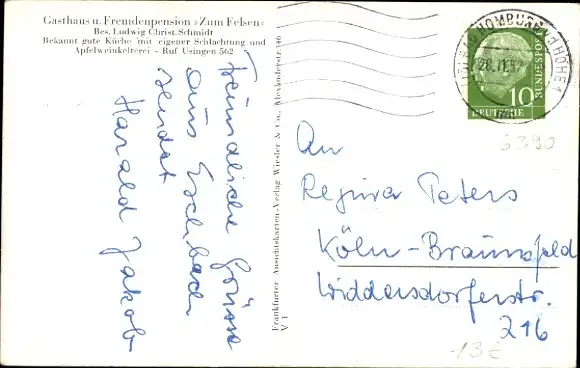 Gasthaus u. Fremdenpension »Zum Felsen«
Bes. Ludwig Christ. Schmidt
Bekannt gute Küche mit eigener Schlachtung und
Apfelweinkelterei - Ruf Usingen 562
Freundliche Grüsse
aus Eschbach
sendet
Harald Jakob
Frankfurter Ansichtskarten-Verlag Wiesler & Co., Alexanderstr. 146
V 1
HOMBURG
HÖHE 1
28.11.57
10
DEUTSCHE
BUNDESPOST
6390
An
Regina Peters
Köln-Braunsfeld
Widdersdorferstr.
216
13€